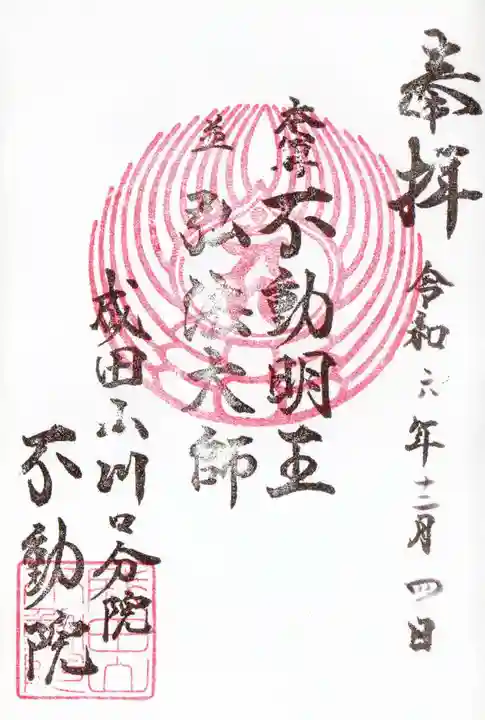 奉拝
令和六年十二月四日
本尊 不動明王
並 弘法大師
成田山川口分院
不動院